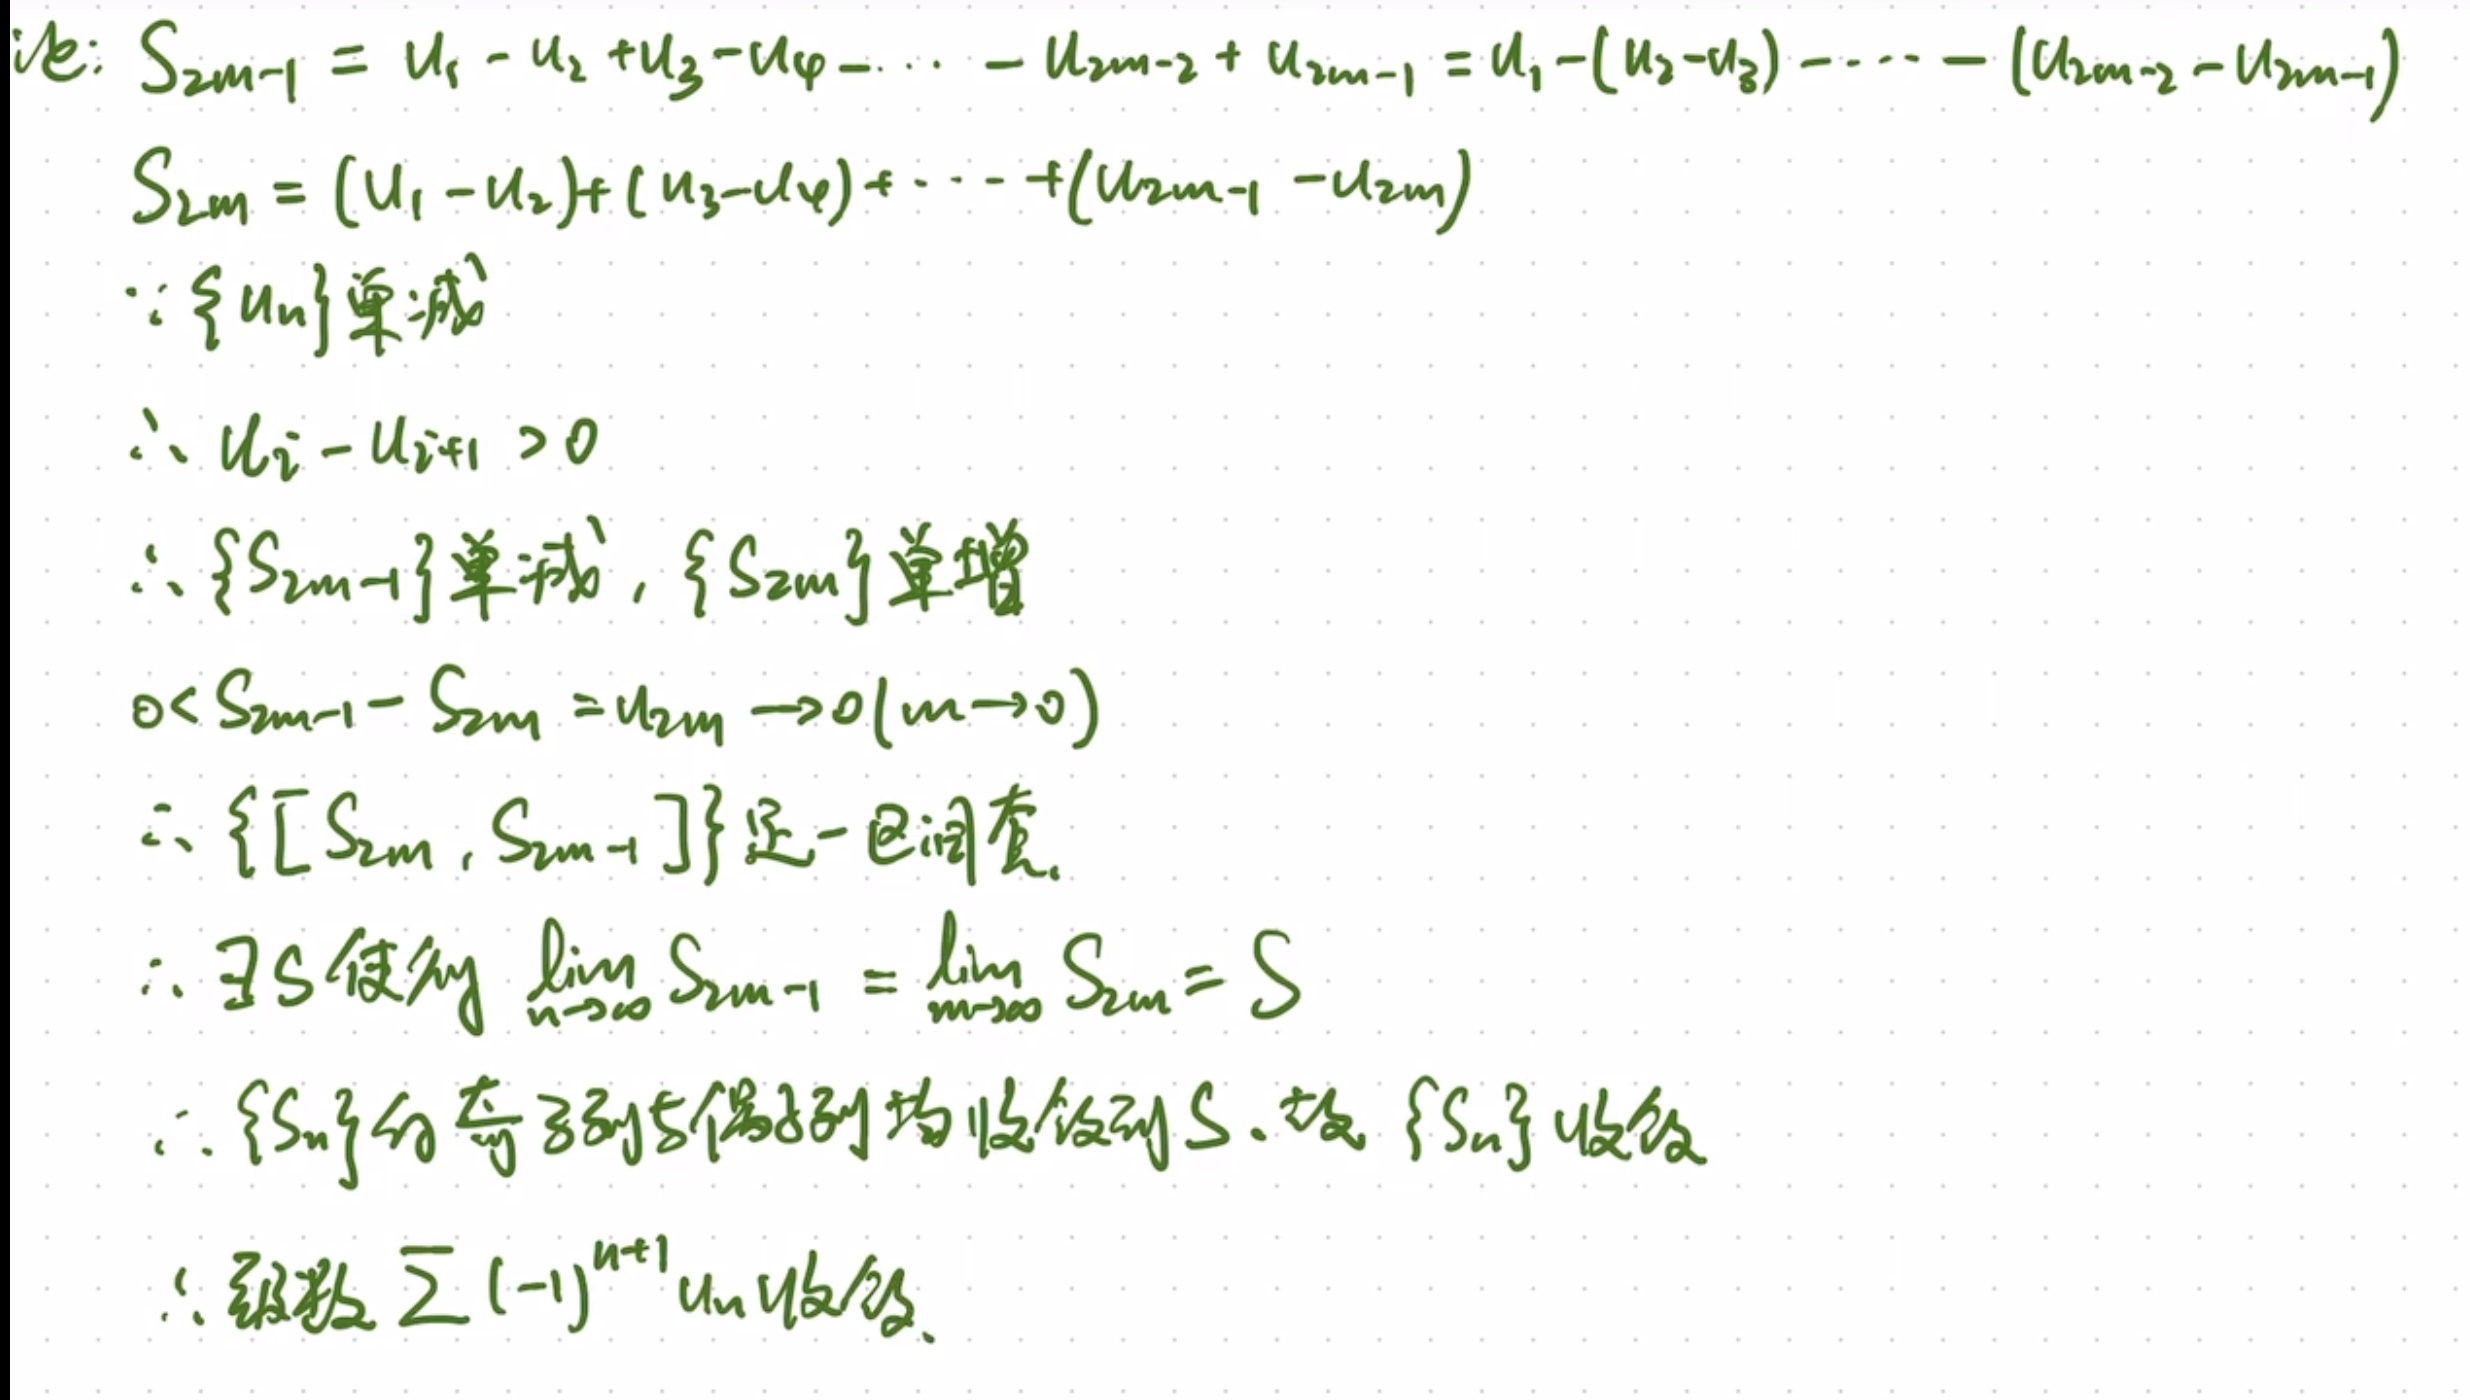 证: S₂ₘ₋₁ = u₁ - u₂ + u₃ - u₄ - ... - u₂ₘ₋₂ + u₂ₘ₋₁ = u₁ - (u₂ - u₃) - ... - (u₂ₘ₋₂ - u₂ₘ₋₁)
S₂ₘ = (u₁ - u₂) + (u₃ - u₄) + ... + (u₂ₘ₋₁ - u₂ₘ)
∵ {uₙ}单减
∴ uᵢ - uᵢ₊₁ > 0
∴ {S₂ₘ₋₁}单减, {S₂ₘ}单增
0 < S₂ₘ₋₁ - S₂ₘ = u₂ₘ → 0 (m → 0)
∴ {[S₂ₘ, S₂ₘ₋₁]}是一区间套.
∴ ∃S使得 lim n→∞ S₂ₘ₋₁ = lim m→∞ S₂ₘ = S
∴ {Sₙ}的奇子列与偶子列均收敛到S. 故 {Sₙ}收敛
∴ 级数 ∑(-1)ⁿ⁺¹uₙ收敛.